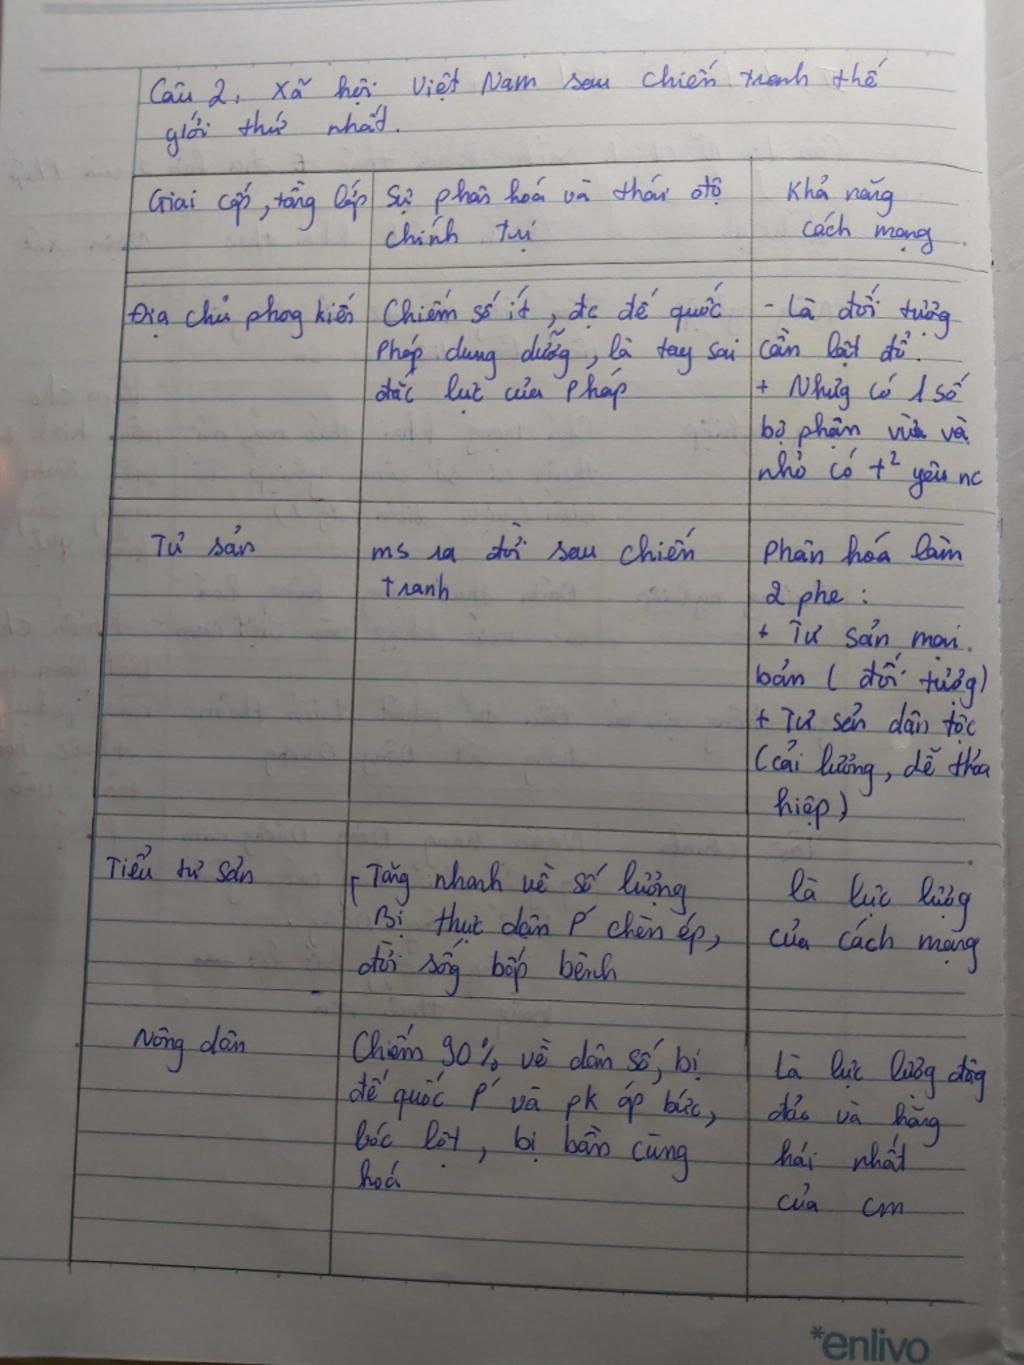 Câu 2. Xã hội Việt Nam sau chiến tranh thế
giới thứ nhất.
Giai cấp, tầng lớp
Sự phân hoá và thái độ
chính trị
Khả năng
cách mạng
Địa chủ phog kiến
Chiếm số ít, đc đế quốc
Pháp dung dưỡg, là tay sai
đắc lực của Pháp
- Là đối tượng
cần lật đổ.
+ Nhưg có 1 số
bộ phận vừa và
nhỏ có t² yêu nc
Tư sản
ms ra đời sau chiến
tranh
Phân hoá làm
2 phe :
+ Tư sản mại
bản ( đối tượg)
+ Tư sản dân tộc
(cải lương, dễ thỏa
hiệp)
Tiểu tư sản
Tăng nhanh về số lượng
Bị thực dân P' chèn ép,
đời sốg bấp bênh
là lực lượg
của cách mạng
Nông dân
Chiếm 90% về dân số, bị
đế quốc P' và pk áp bức,
bóc lột, bị bần cùng
hoá
Là lực lượg đôg
đảo và hăng
hái nhất
của cm
*enlivo